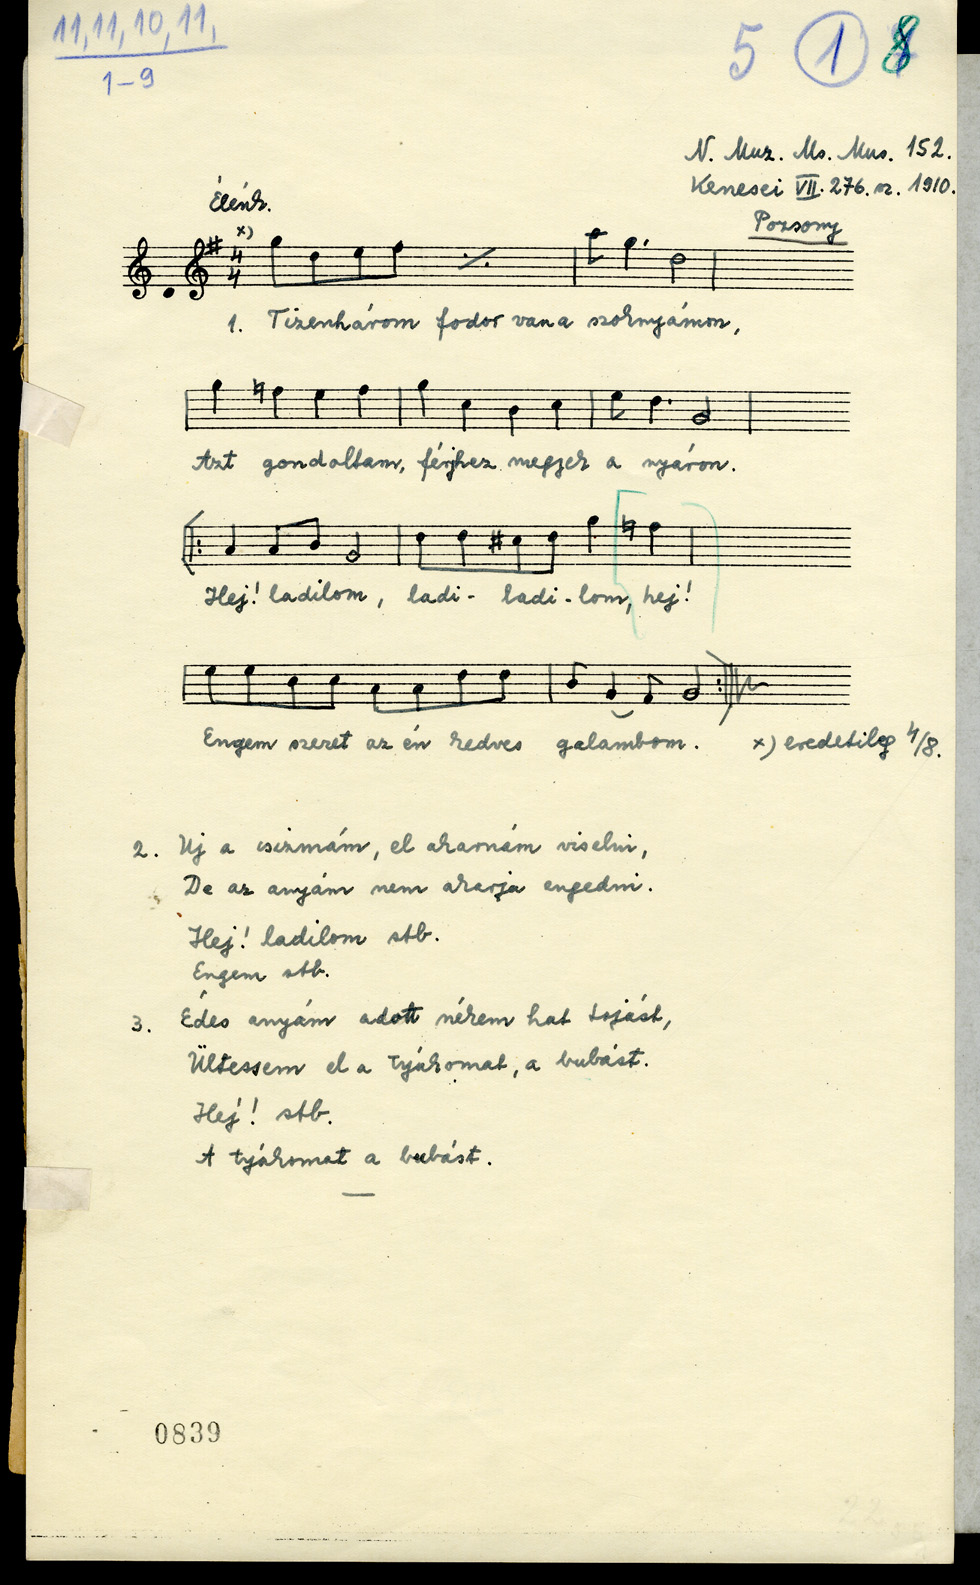 11, 11, 10, 11,
1-9
5 1 8
N. Muz. Ms. Mus. 152.
Kenesei VII. 276. sz. 1910.
Pozsony
Élénk.
x)
4
4
1. Tizenhárom fodor van a szoknyámon,
Azt gondoltam, férjhez megyek a nyáron.
Hej! ladilom, ladi- ladi-lom, hej!
Engem szeret az én kedves galambom. x) eredetileg 4/8.
2. Uj a csizmám, el akarnám viselni,
De az anyám nem akarja engedni.
Hej! ladilom stb.
Engem stb.
3. Édes anyám adott nékem hat tojást,
Ültessem el a tyúkomat, a bubást.
Hej! stb.
A tyúkomat a bubást.
0839